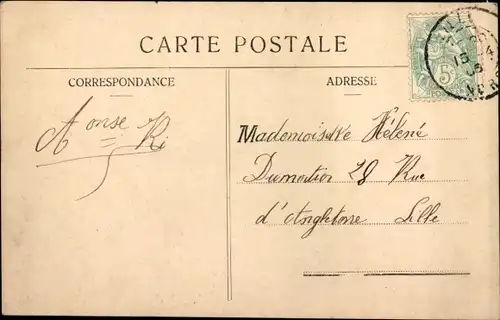 CARTE POSTALE
CORRESPONDANCE
ADRESSE
5
15
A onse Ri
Mademoiselle Hélène
Dumortier 28 Rue
d'Angleterre Lille